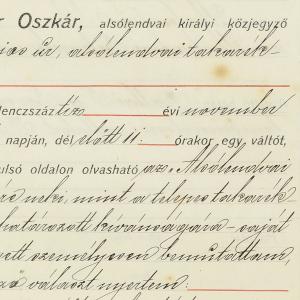 r Oszkár, alsólendvai királyi közjegyző
úr, alsólendvai takarék-
lenczszáz tíz évi november
napján, dél előtt 11. órakor egy váltót,
ulsó oldalon olvasható az „Alsólendvai
neki, mint a telepes takarék
határozott kívánságára - saját
ett személyesen bemutattam,
választ nyertem: